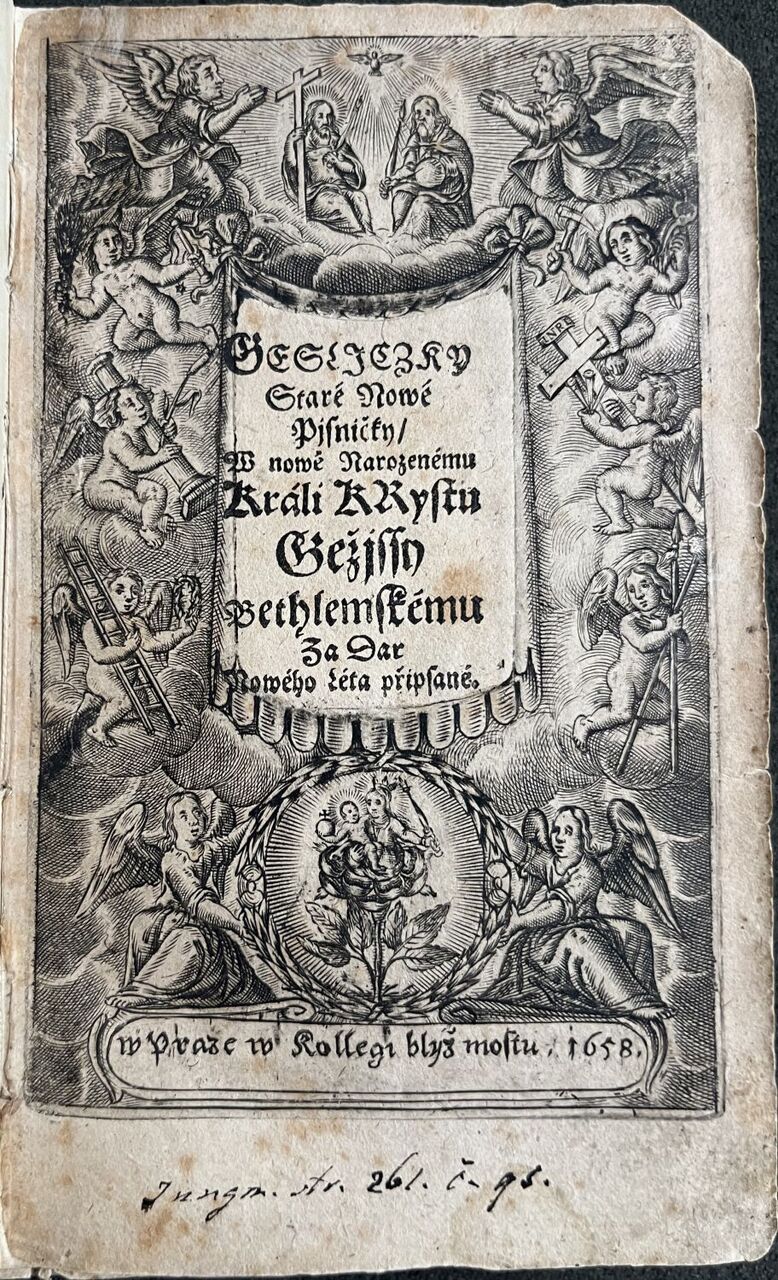 GESLICZKY
Staré Nowé
Pjsničky/
W nowě Narozenému
Králi KRystu
Gežjssy
Bethlemskému
Za Dar
Nowého Léta připsané.
INRI
w Praze w Kollegi blyž mostu, 1658.
Jungm. str. 261. č. 95.